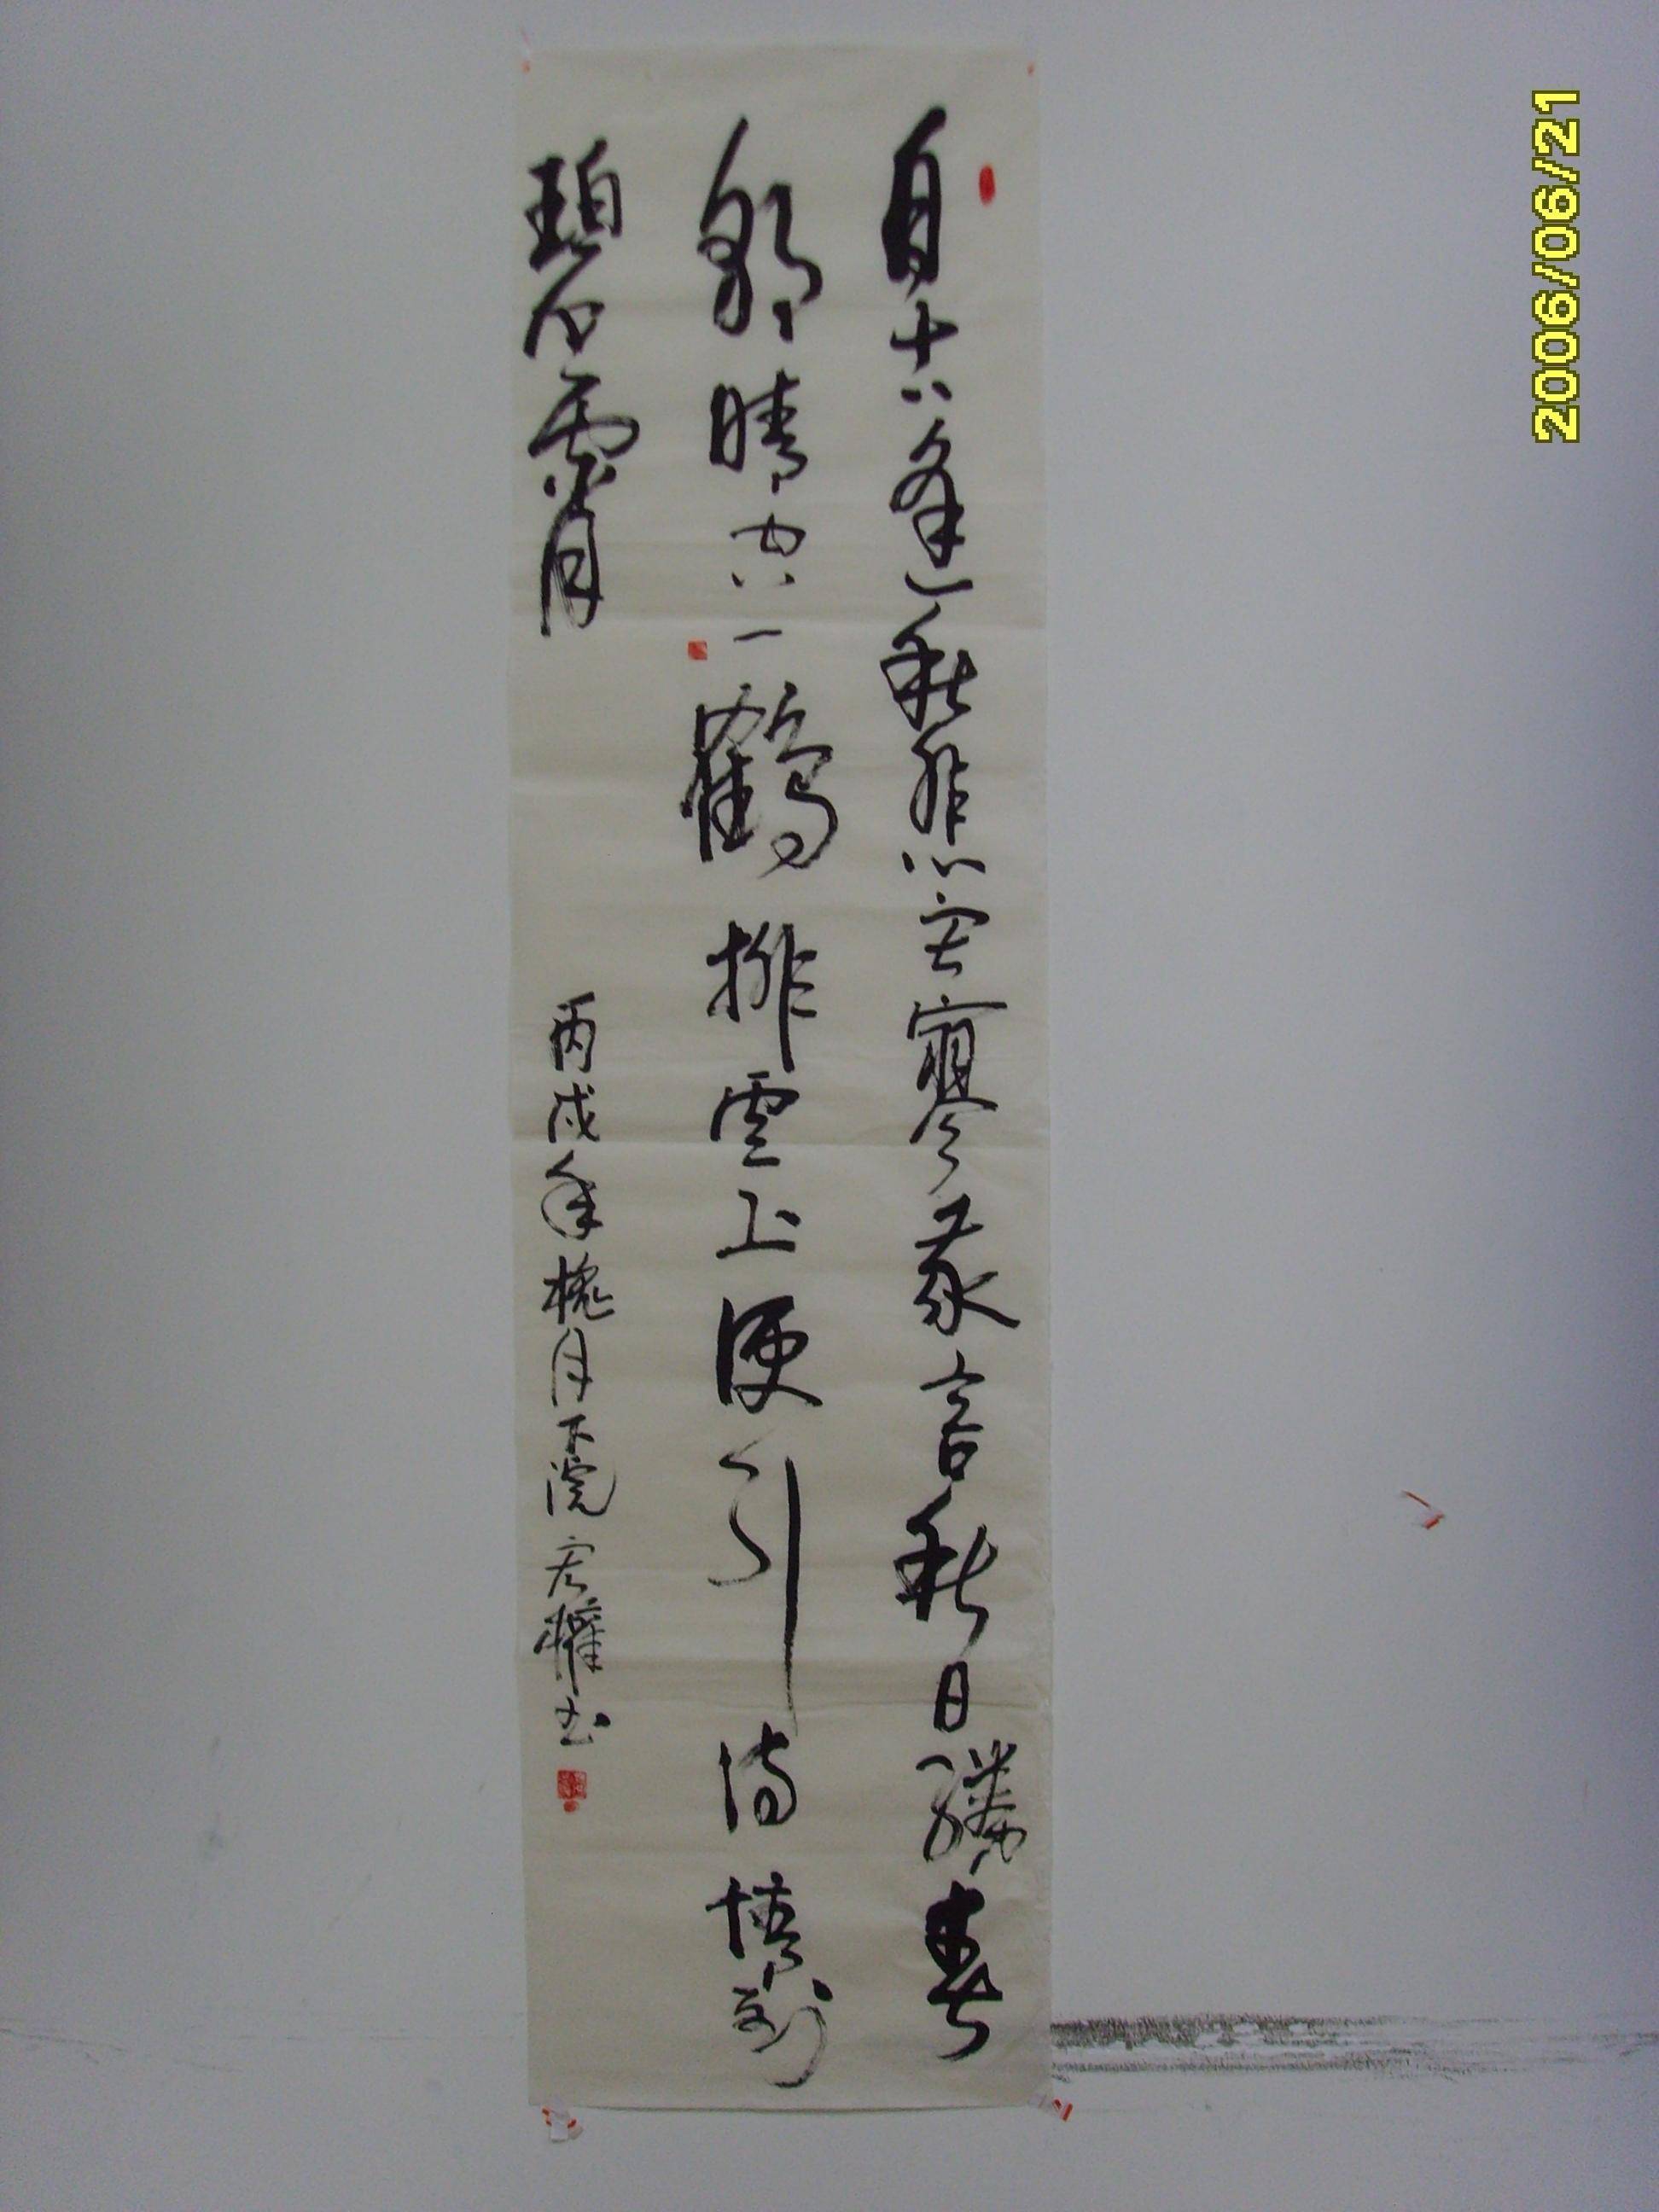 自古逢秋悲寂寥我言秋日勝春
朝晴空一鶴排雲上便引詩情到
碧霄
丙戌年槐月下浣 書
2006/06/21